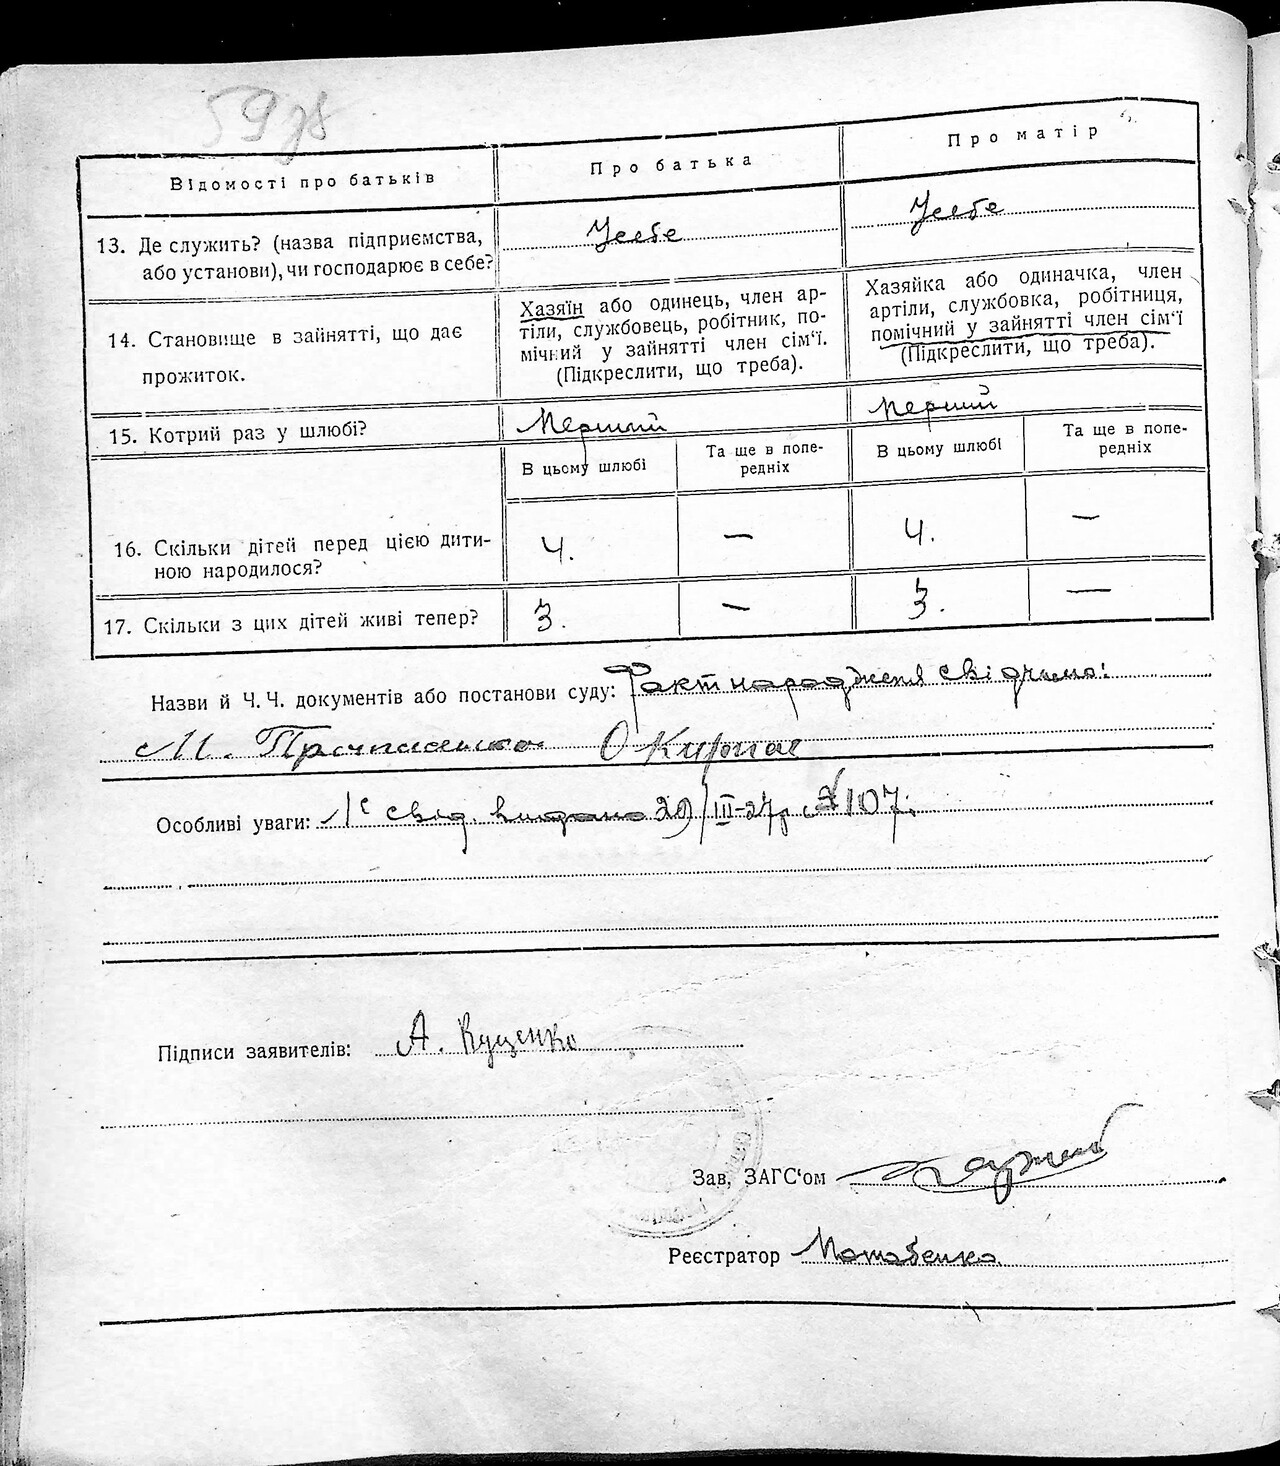 59 зв
Відомості про батьків
Про батька
Про матір
13. Де служить? (назва підприємства,
або установи), чи господарює в себе?
Усебе
Усебе
14. Становище в зайнятті, що дає
прожиток.
Хазяїн або одинець, член ар-
тілі, службовець, робітник, по-
мічний у зайнятті член сім'ї.
(Підкреслити, що треба).
Хазяйка або одиначка, член
артіли, службовка, робітниця,
помічний у зайнятті член сім'ї
(Підкреслити, що треба).
15. Котрий раз у шлюбі?
Перший
перший
В цьому шлюбі
Та ще в попе-
редніх
В цьому шлюбі
Та ще в попе-
редніх
16. Скільки дітей перед цією дити-
ною народилося?
4.
—
4.
—
17. Скільки з цих дітей живі тепер?
3.
—
3.
—
Назви й Ч. Ч. документів або постанови суду: Факт народженя свідчимо:
М. О
Особливі уваги: свід. видано 29/III-27р №107.
Підписи заявителів: А. Куценко
Зав, ЗАГС'ом
Реєстратор